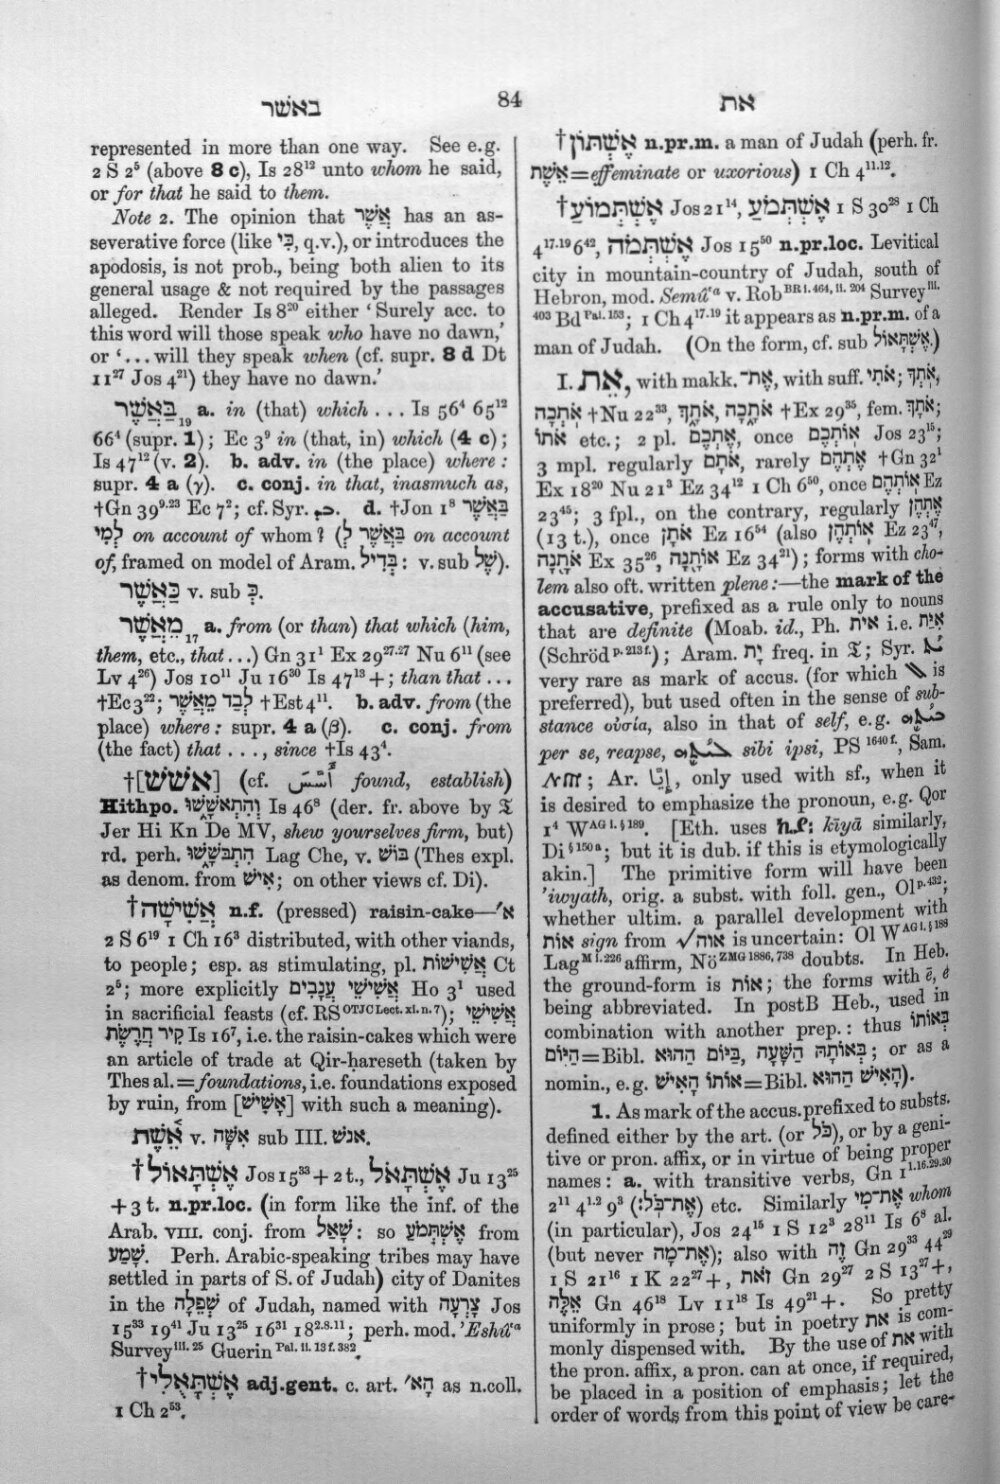 באשר
84
את
represented in more than one way. See e.g.
2 S 2⁵ (above 8 c), Is 28¹² unto whom he said,
or for that he said to them.
Note 2. The opinion that אֲשֶׁר has an as-
severative force (like כִּי, q.v.), or introduces the
apodosis, is not prob., being both alien to its
general usage & not required by the passages
alleged. Render Is 8²⁰ either ‘Surely acc. to
this word will those speak who have no dawn,’
or ‘... will they speak when (cf. supr. 8 d Dt
11²⁷ Jos 4²¹) they have no dawn.’
בַּאֲשֶׁר₁₉ a. in (that) which ... Is 56⁴ 65¹²
66⁴ (supr. 1); Ec 3⁹ in (that, in) which (4 c);
Is 47¹² (v. 2). b. adv. in (the place) where:
supr. 4 a (γ). c. conj. in that, inasmuch as,
†Gn 39⁹·²³ Ec 7²; cf. Syr. d. †Jon 1⁸ בַּאֲשֶׁר
לְמִי on account of whom? (בַּאֲשֶׁר לְ on account
of, framed on model of Aram. בְּדִיל: v. sub שֶׁל).
כַּאֲשֶׁר v. sub כְּ.
מֵאֲשֶׁר₁₇ a. from (or than) that which (him,
them, etc., that...) Gn 31¹ Ex 29²⁷·²⁷ Nu 6¹¹ (see
Lv 4²⁶) Jos 10¹¹ Ju 16³⁰ Is 47¹³+; than that ...
†Ec 3²²; לְבַד מֵאֲשֶׁר †Est 4¹¹. b. adv. from (the
place) where: supr. 4 a (β). c. conj. from
(the fact) that ..., since †Is 43⁴.
†[אשׁשׁ] (cf. أَسَّسَ found, establish)
Hithpo. וְהִתְאֹשָׁשׁוּ Is 46⁸ (der. fr. above by 𝔗
Jer Hi Kn De MV, shew yourselves firm, but)
rd. perh. הִתְבּשָׁשׁוּ Lag Che, v. בושׁ (Thes expl.
as denom. from אִישׁ; on other views cf. Di).
†אֲשִׁישָׁה n.f. (pressed) raisin-cake—א׳
2 S 6¹⁹ 1 Ch 16³ distributed, with other viands,
to people; esp. as stimulating, pl. אֲשִׁישׁוֹת Ct
2⁵; more explicitly אֲשִׁישֵׁי עֲנָבִים Ho 3¹ used
in sacrificial feasts (cf. RS OTJC Lect. xi. n. 7); אֲשִׁישֵׁי
קִיר חֲרֶשֶׂת Is 16⁷, i.e. the raisin-cakes which were
an article of trade at Qir-ḥareseth (taken by
Thes al. = foundations, i.e. foundations exposed
by ruin, from [אָשִׁישׁ] with such a meaning).
אֵ֫שֶׁת v. אִשָּׁה sub III. אנשׁ.
†אֶשְׁתָּאוֹל Jos 15³³ + 2 t., אֶשְׁתָּאֹל Ju 13²⁵
+ 3 t. n.pr.loc. (in form like the inf. of the
Arab. VIII. conj. from שָׁאַל: so אֶשְׁתְּמֹעַ from
שָׁמַע. Perh. Arabic-speaking tribes may have
settled in parts of S. of Judah) city of Danites
in the שְׁפֵלָה of Judah, named with צָרְעָה Jos
15³³ 19⁴¹ Ju 13²⁵ 16³¹ 18²·⁸·¹¹; perh. mod. ’Eshûʿa
Survey iii. 25 Guerin Pal. ii. 13 f. 382.
†אֶשְׁתָּאֻלִי adj.gent. c. art. הָא׳ as n.coll.
1 Ch 2⁵³.
†אֶשְׁתּוֹן n.pr.m. a man of Judah (perh. fr.
אֵשֶׁת = effeminate or uxorious) 1 Ch 4¹¹·¹².
†אֶשְׁתְּמוֹעַ Jos 21¹⁴, אֶשְׁתְּמֹעַ 1 S 30²⁸ 1 Ch
4¹⁷·¹⁹ 6⁴², אֶשְׁתְּמֹה Jos 15⁵⁰ n.pr.loc. Levitical
city in mountain-country of Judah, south of
Hebron, mod. Semûʿa v. Rob BR i. 464, ii. 204 Survey iii.
403 Bd Pal. 153; 1 Ch 4¹⁷·¹⁹ it appears as n.pr.m. of a
man of Judah. (On the form, cf. sub אֶשְׁתָּאוֹל.)
I. אֵת, with makk. אֶת־, with suff. אֹתִי; אֹתְךָ,
אֹתְכָה †Nu 22³³, אֹתָךְ, אֹתָכָה †Ex 29³⁵, fem. אֹתָךְ;
אֹתוֹ etc.; 2 pl. אֶתְכֶם, once אוֹתְכֶם Jos 23¹⁵;
3 mpl. regularly אֹתָם, rarely אֶתְהֶם †Gn 32¹
Ex 18²⁰ Nu 21³ Ez 34¹² 1 Ch 6⁵⁰, once אוֹתְהֶם Ez
23⁴⁵; 3 fpl., on the contrary, regularly אֶתְהֶן
(13 t.), once אֹתָן Ez 16⁵⁴ (also אוֹתְהֶן Ez 23⁴⁷,
אֹתָנָה Ex 35²⁶, אוֹתָנָה Ez 34²¹); forms with cho-
lem also oft. written plene:—the mark of the
accusative, prefixed as a rule only to nouns
that are definite (Moab. id., Ph. אית i.e. אִיַּת
(Schröd p. 213 f.); Aram. יָת freq. in 𝔗; Syr.
very rare as mark of accus. (for which is
preferred), but used often in the sense of sub-
stance οὐσία, also in that of self, e.g.
per se, reapse, sibi ipsi, PS 1640 f., Sam.
; Ar. إِيَّا, only used with sf., when it
is desired to emphasize the pronoun, e.g. Qor
1⁴ W AG i. § 189. [Eth. uses ኪያ: kīyā similarly,
Di § 150 a; but it is dub. if this is etymologically
akin.] The primitive form will have been
’iwyath, orig. a subst. with foll. gen., Ol p. 432;
whether ultim. a parallel development with
אות sign from √אוה is uncertain: Ol W AG i. § 188
Lag M i. 226 affirm, Nö ZMG 1886, 738 doubts. In Heb.
the ground-form is אות; the forms with ē, ĕ
being abbreviated. In postB Heb., used in
combination with another prep.: thus בְּאוֹתוֹ
הַיּוֹם = Bibl. בַּיּוֹם הַהוּא, בְּאוֹתָהּ הַשָּׁעָה; or as a
nomin., e.g. אוֹתוֹ הָאִישׁ = Bibl. הָאִישׁ הַהוּא).
1. As mark of the accus. prefixed to substs.
defined either by the art. (or כֹּל), or by a geni-
tive or pron. affix, or in virtue of being proper
names: a. with transitive verbs, Gn 1¹·¹⁶·²⁹·³⁰
2¹¹ 4¹·² 9³ (אֶת־כֹּל׃) etc. Similarly אֶת־מִי whom
(in particular), Jos 24¹⁵ 1 S 12³ 28¹¹ Is 6⁸ al.
(but never אֶת־מָה); also with זֶה Gn 29³³ 44²⁹
1 S 21¹⁶ 1 K 22²⁷+, זֹאת Gn 29²⁷ 2 S 13¹⁷+,
אֵלֶּה Gn 46¹⁸ Lv 11¹⁸ Is 49²¹+. So pretty
uniformly in prose; but in poetry את is com-
monly dispensed with. By the use of את with
the pron. affix, a pron. can at once, if required,
be placed in a position of emphasis; let the
order of words from this point of view be care-